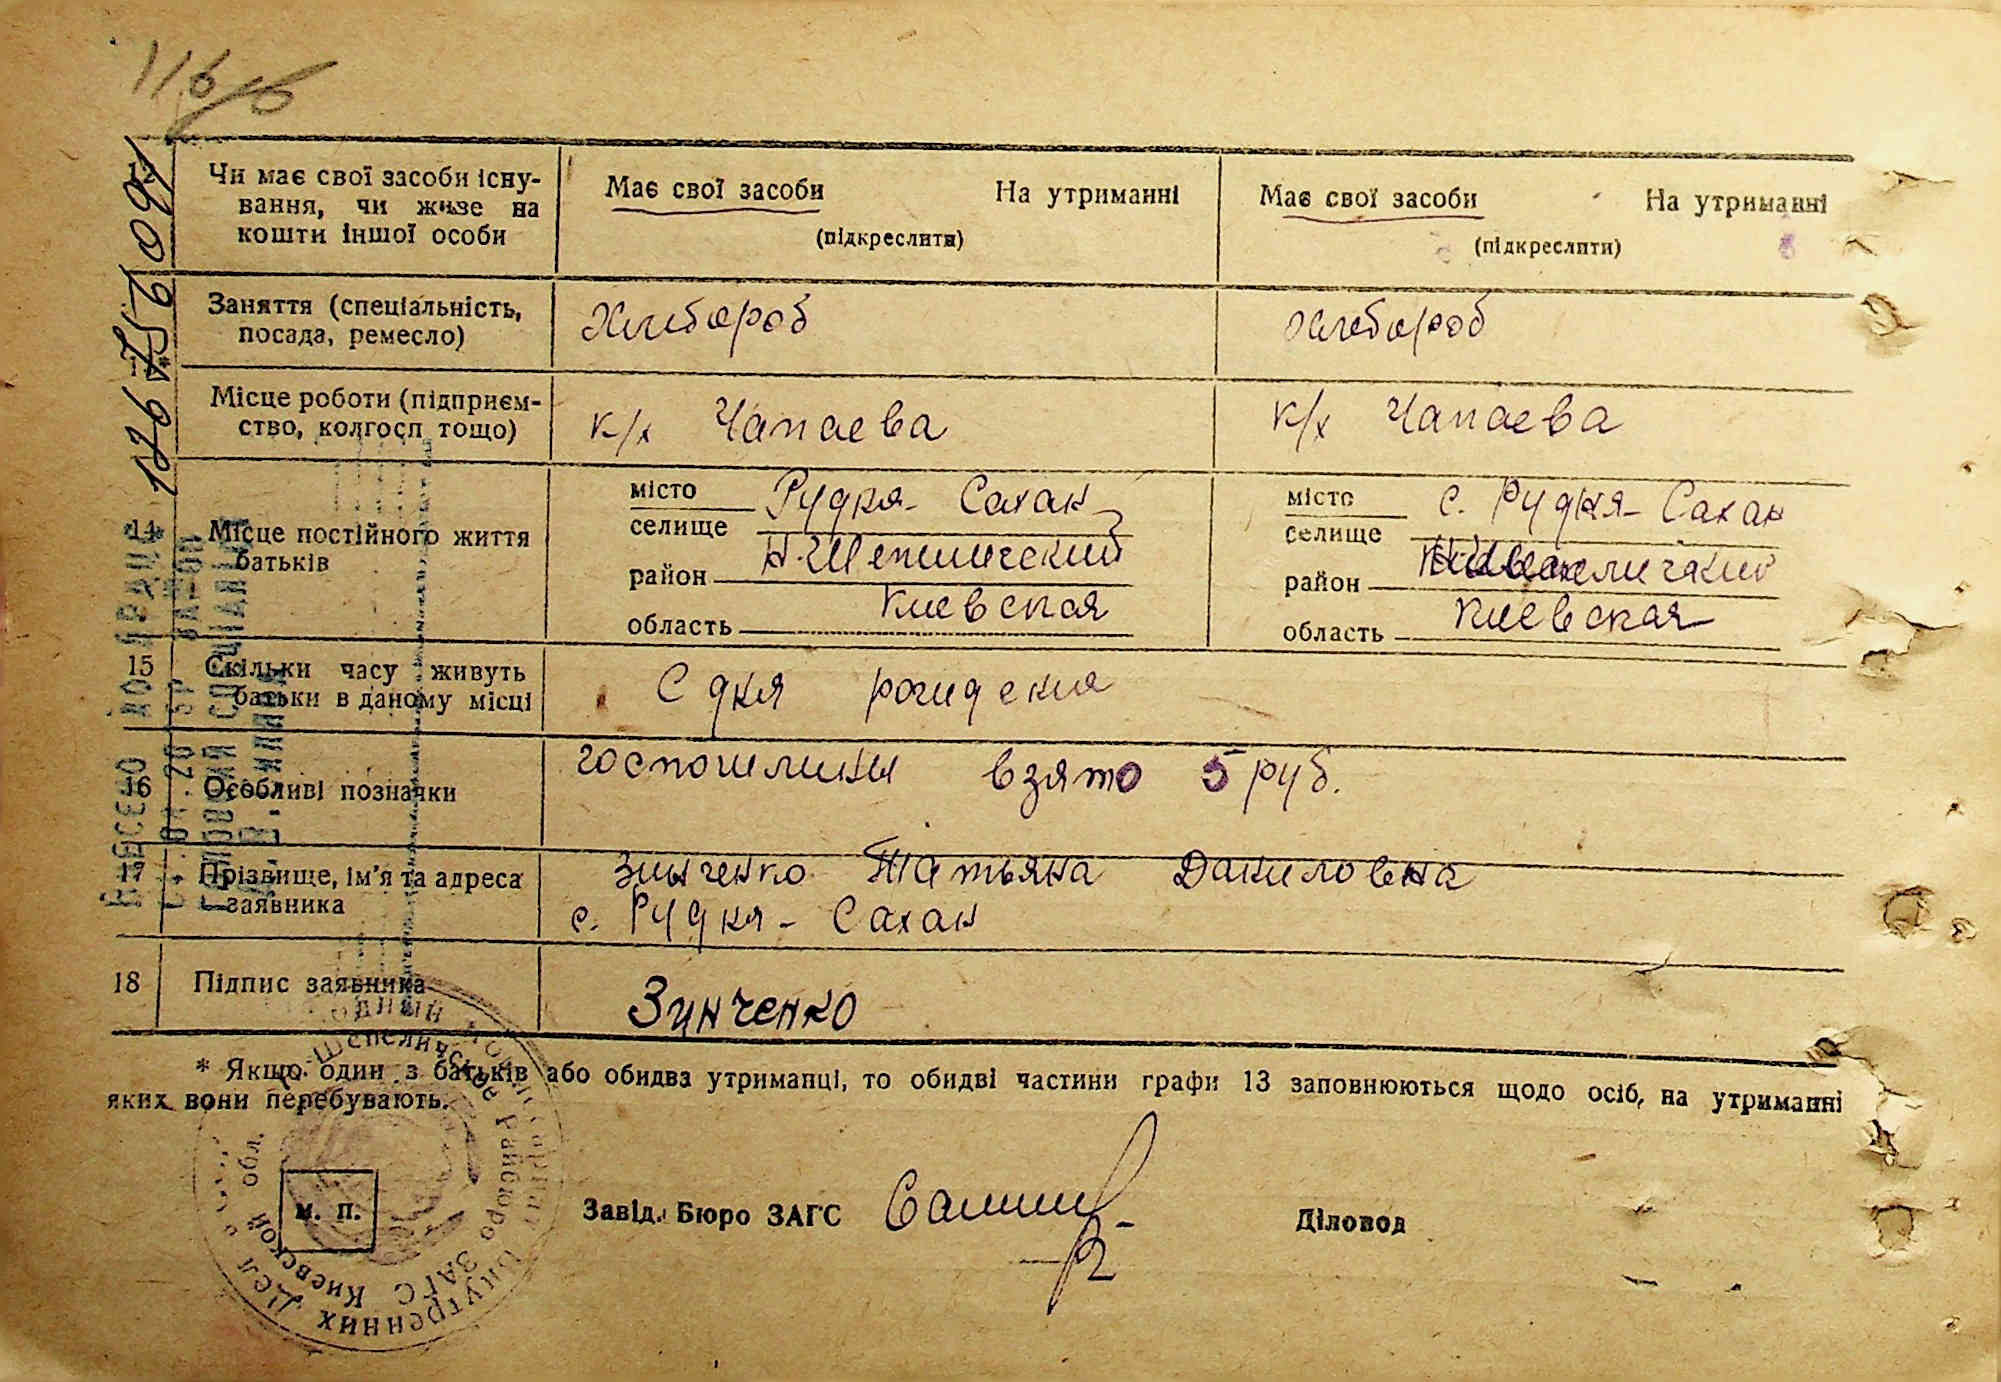 116
12
Чи має свої засоби існу-
вання, чи живе на
кошти іншої особи
Має свої засоби На утриманні
(підкреслити)
Має свої засоби На утриманні
(підкреслити)
Заняття (спеціальність,
посада, ремесло)
Хлебороб
хлебороб
Місце роботи (підприєм-
ство, колгосп тощо)
к/х Чапаева
к/х Чапаева
14
Місце постійного життя
батьків
місто Рудня-Сахан
селище
район Н-Шепеличский
область Киевская
місто с. Рудня-Сахан
селище
район
область Киевская
15
Скільки часу живуть
батьки в даному місці
С дня рождения
16
Особливі позначки
госпошлины взято 5 руб.
17
Прізвище, ім'я та адреса
заявника
Зинченко Татьяна Даниловна
с. Рудня-Сахан
18
Підпис заявника
Зинченко
* Якщо один з батьків або обидва утриманці, то обидві частини графи 13 заповнюються щодо осіб, на утриманні
яких вони перебувають.
м. п.
Завід. Бюро ЗАГС
Діловод
Шепеличское Райбюро ЗАГС Киевской обл.
Внутренних Дел